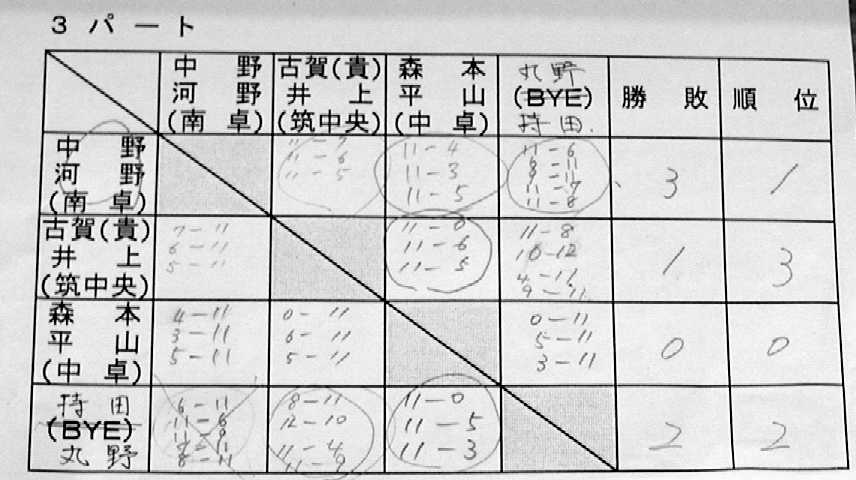 3 パート
中 野 古賀(貴) 森 本 丸野
河 野 井 上 平 山 (BYE) 勝 敗 順 位
(南 卓) (筑中央) (中 卓) 持田
中 野 11-7 11-4 11-6
河 野 11-6 11-3 3 1
(南 卓) 11-5 11-5 11-7
11-8
古賀(貴) 7-11 11-0 11-8
井 上 6-11 11-6 10-12 1 3
(筑中央) 5-11 11-5 4-11
9-11
森 本 4-11 0-11 0-11
平 山 3-11 6-11 5-11 0 0
(中 卓) 5-11 5-11 3-11
持田 6-11 8-11 11-0
(BYE) 12-10 11-5 2 2
丸野 7-11 11-4 11-3
8-11 11-9